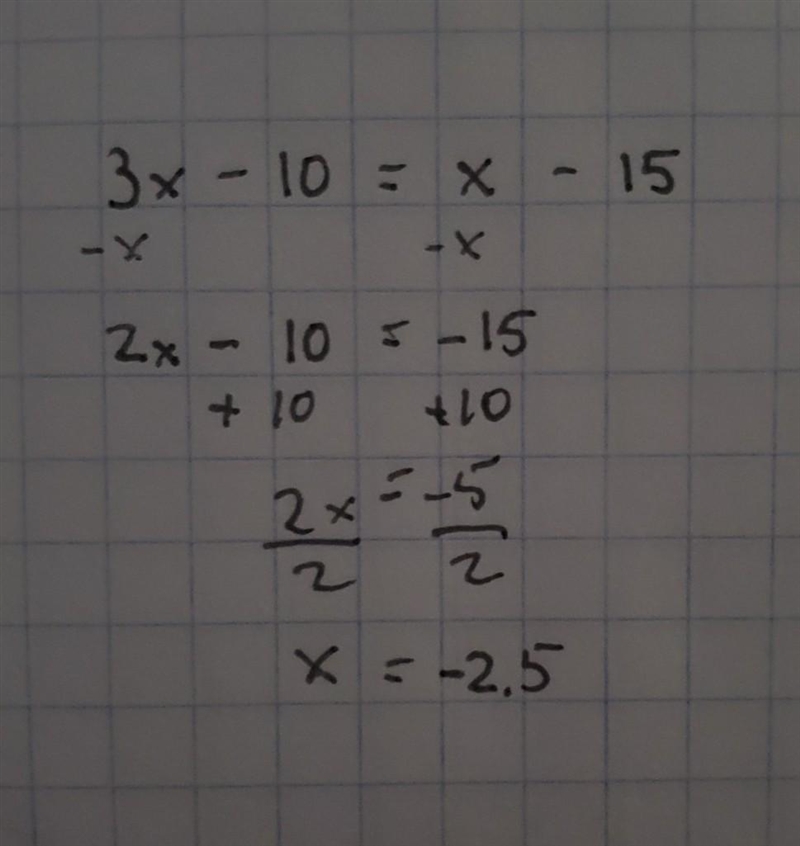 3x - 10 = x - 15
-x -x
2x - 10 = -15
+ 10 +10
2x = -5
2 2
x = -2.5